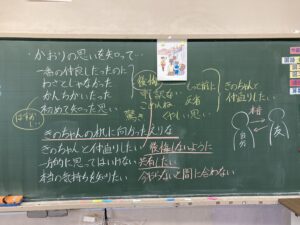 ・かおりの思いを知って…
一番の仲良しだったのに
わざとじゃなかった
かんちがいだった
初めて知った思い
後悔
申し訳ない
ごめんね
驚き
くやしい思い
もっと前に
きのちゃんと
仲直りしたい
村
自分
友
きのちゃんの机に向かったえりな
きのちゃんと仲直りしたい
後悔しないように
一方的に思ってはいけない
共有したい
本当の気持ちを知りたい
今やらないと間に合わない